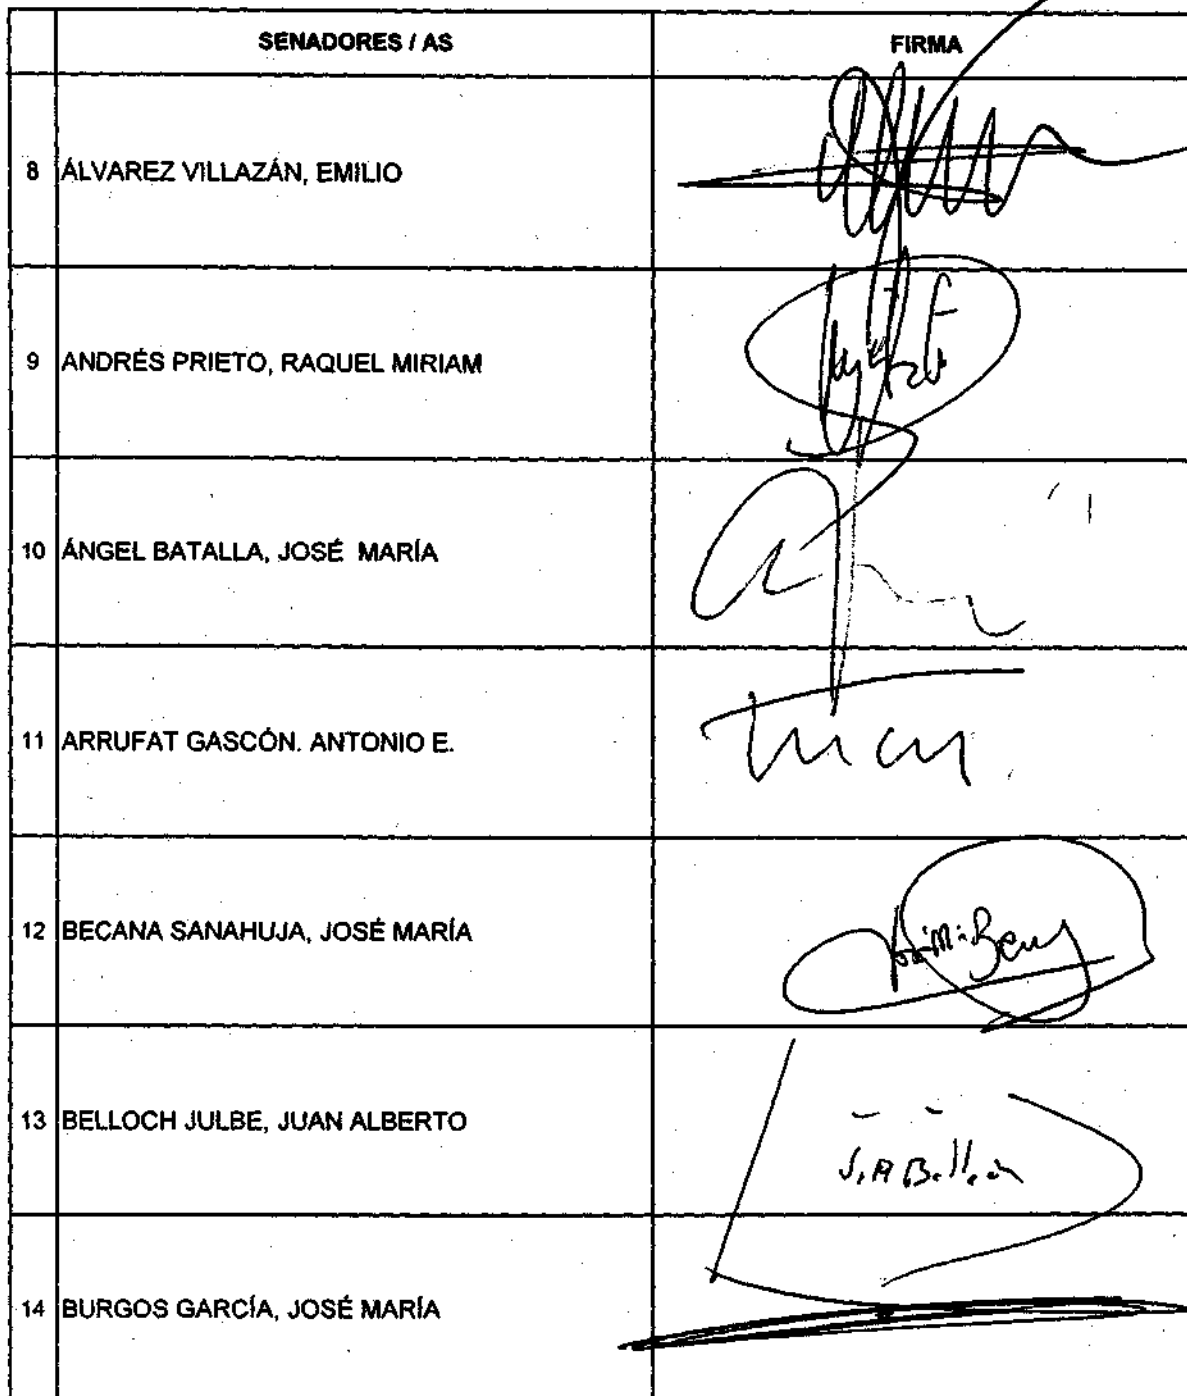 SENADORES / AS FIRMA
8 ÁLVAREZ VILLAZÁN, EMILIO
9 ANDRÉS PRIETO, RAQUEL MIRIAM
10 ÁNGEL BATALLA, JOSÉ MARÍA
11 ARRUFAT GASCÓN. ANTONIO E.
12 BECANA SANAHUJA, JOSÉ MARÍA
13 BELLOCH JULBE, JUAN ALBERTO
14 BURGOS GARCÍA, JOSÉ MARÍA